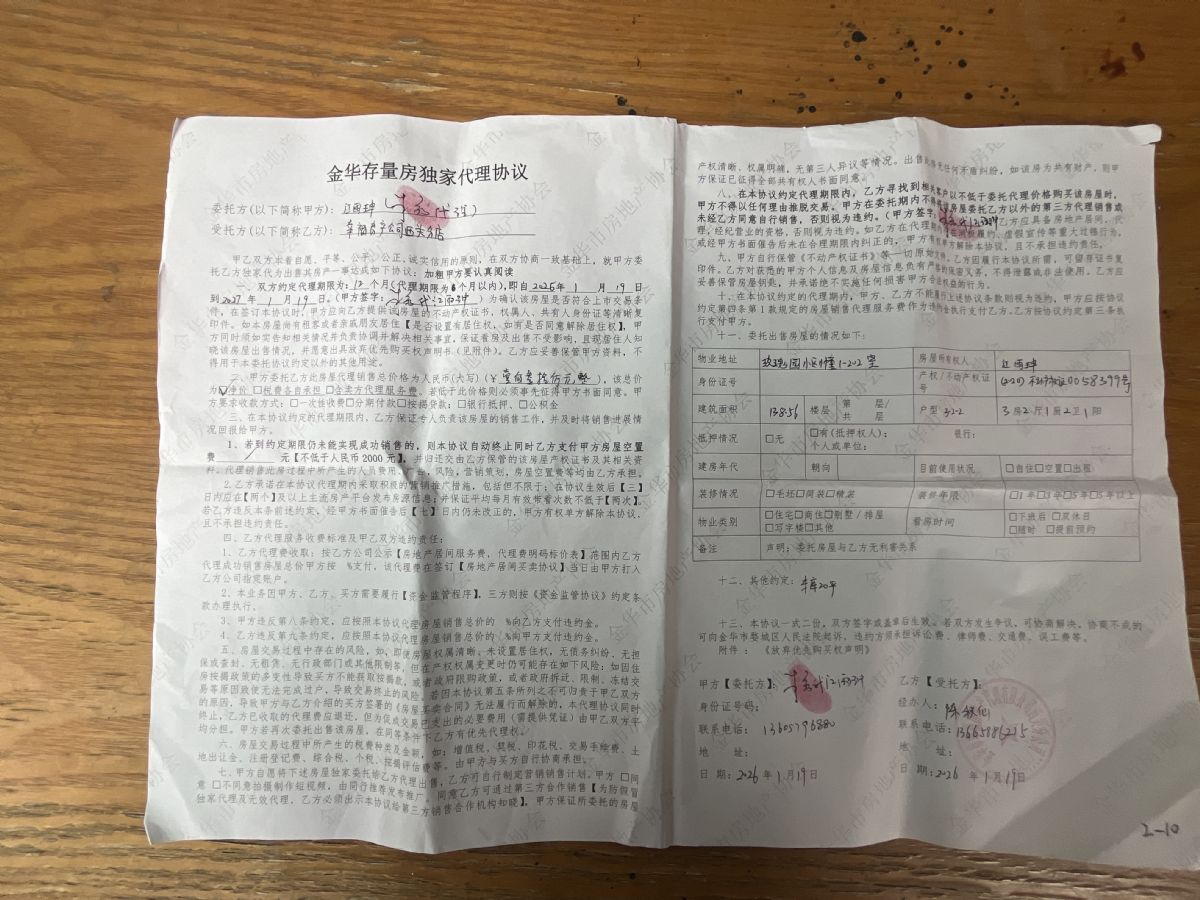 金华存量房独家代理协议
委托方(以下简称甲方):
受托方(以下简称乙方):
甲乙双方本着自愿、平等、公平、公正、诚实信用的原则，在双方协商一致基础上，就甲方委
托乙方独家代为出售其房产一事达成如下协议：加粗甲方要认真阅读
一、双方约定代理期限为：12个月(代理期限为6个月以内)，即自2026年1月19日
到2027年1月19日。(甲方签字：
)为确认该房屋是否符合上市交易条
件，在签订本协议时，甲方应向乙方提供该房屋的不动产权证书、权属人、共有人身份证等清晰复
印件。如本房屋尚有租客或者亲戚朋友居住【是否设置有居住权，如有是否同意解除居住权】，甲
方同时须如实告知相关情况并负责协调并解决相关事宜，保证看房及出售不受影响，且现居住人知
晓该房屋出售情况，并愿意出具放弃优先购买权声明书(见附件)。乙方应妥善保管甲方资料，不
得用于本委托协议约定以外的其他用途。
二、甲方委托乙方此房屋代理销售总价格为人民币(大写)(￥
)，该总价
为☑净价□税费各自承担□含卖方代理服务费。若低于此价格则必须事先征得甲方书面同意。甲
方要求收款方式：□一次性收费□分期付款□按揭贷款：□银行抵押、□公积金
三、在本协议约定的代理期限内，乙方保证专人负责该房屋的销售工作，并及时将销售进展情
况回报给甲方。
1、若到约定期限仍未能实现成功销售的，则本协议自动终止同时乙方支付甲方房屋空置
费 / 元【不低于人民币2000元】，并归还交由乙方保管的该房屋产权证书及其相关资
料。代理销售此房过程中所产生的人员费用、广告、风险，营销策划，房屋空置费等均由乙方承担。
2.乙方承诺在本协议代理期内采取积极的营销推广措施，包括但不限于：在协议生效后【三】
日内应在【两个】及以上主流房产平台发布房源信息；并保证平均每月有效带看次数不低于【两次】。
若乙方违反本条前述约定，经甲方书面催告后【七】日内仍未改正的，甲方有权单方解除本协议，
且不承担违约责任。
四、乙方代理服务收费标准及甲乙双方违约责任：
1、乙方代理费收取：按乙方公司公示【房地产居间服务费、代理费明码标价表】范围内乙方
代理成功销售房屋总价甲方按 %支付，该代理费在签订【房地产居间买卖协议】当日由甲方打入
乙方公司指定账户。
2、本业务因甲方、乙方、买方需要履行【资金监管程序】，三方则按《资金监管协议》约定条
款办理执行。
3、甲方违反第八条约定，应按照本协议代理房屋销售总价的 %向乙方支付违约金。
4、乙方违反第九条约定，应按照本协议代理房屋销售总价的 %向甲方支付违约金。
五、房屋交易过程中存在的风险，如，即使房屋权属清晰、未设置居住权，无债务纠纷、无担
保或查封、无租赁、无行政部门或其他限制等，但在产权权属变更时仍可能存在如下风险：如因住
房按揭政策的多变性导致买方不能获取按揭款，或者政府限购政策，或者政府拆迁、限制、冻结交
易等原因致使无法完成过户，导致交易终止的风险。若因本协议第五条所列之不可归责于甲乙双方
的原因，导致甲方与乙方介绍的买方签署的《房屋买卖合同》无法履行而解除的，本代理协议同时
终止，乙方已收取的代理费应退还，但为促成交易已支出的必要费用(需提供凭证)由甲乙双方平
均分担。甲方若再次委托出售该房屋，在同等条件下乙方有优先代理权。
六、房屋交易过程中所产生的税费种类及金额，如：增值税、契税、印花税、交易手续费、土
地出让金、注册登记费、综合税、个税、按揭评估费等。由甲方与买方自行协商承担。
七、甲方自愿将下述房屋独家委托给乙方代理出售，乙方可自行制定营销销售计划。甲方 □同
意 □不同意拍摄制作短视频，由同行推荐发布推广。同意乙方可通过第三方合作销售【为防假冒
独家代理及无效代理，乙方必须出示本协议给第三方销售合作机构知晓】。甲方保证所委托的房屋
产权清晰、权属明确，无第三人异议等情况。出售此房无任何矛盾纠纷，如该房为共有财产，则甲
方保证已征得全部共有权人书面同意。
八、在本协议约定代理期限内，乙方寻找到相关客户以不低于委托代理价格购买该房屋时，
甲方不得以任何理由推脱交易。甲方在委托期内不得将该房屋委托乙方以外的第三方代理销售或
未经乙方同意自行销售，否则视为违约。(甲方签字：
)乙方应具备房地产居间、代
理、经纪营业的资格，否则视为违约。如乙方在代理期内存在消极履约、虚假宣传等重大过错行为，
或经甲方书面催告后未在合理期限内纠正的，甲方有权单方解除本协议，且不承担违约责任。
九、甲方自行保管《不动产权证书》等一切原始文件。乙方因履行本协议所需，可留存证书复
印件。乙方对获悉的甲方个人信息及房屋信息负有严格的保密义务，不得泄露或非法使用。乙方应
妥善保管房屋钥匙，并承诺绝不实施任何损害甲方合法权益的行为。
十、在本协议约定的代理期内，甲方、乙方不能履行上述协议条款则视为违约，甲方应按协议
约定第四条第1款规定的房屋销售代理服务费作为违约金执行支付乙方。乙方按协议约定第三条执
行支付甲方。
十一、委托出售房屋的情况如下：
物业地址 1-202室 房屋所有权人
身份证号 产权/不动产权证号 0058399号
建筑面积 138.56 楼层 第 层/共 层 户型 322 3房2厅1厨2卫1阳
抵押情况 □无 □有(抵押权人)： 银行：
个人或单位：
建房年代 朝向 目前使用状况 □自住□空置□出租
装修情况 □毛坯□简装□精装 装修年限 □1年□3年□5年□5年以上
物业类别 □住宅□商住□别墅/排屋 □写字楼□其他 看房时间 □下班后 □双休日 □随时 □提前预约
备注 声明：委托房屋与乙方无利害关系
十二、其他约定：车库20平
十三、本协议一式二份，双方签字或盖章后生效。若双方发生争议，可协商解决，协商不成的
可向金华市婺城区人民法院起诉，违约方须承担诉讼费、律师费、交通费、误工费等。
附件：《放弃优先购买权声明》
甲方【委托方】：
身份证号码：
联系电话：13605796880
地 址：
日 期：2026年1月19日
乙方【受托方】：
经办人：陈
联系电话：13665886215
地 址：
日 期：2026年1月19日
2-10